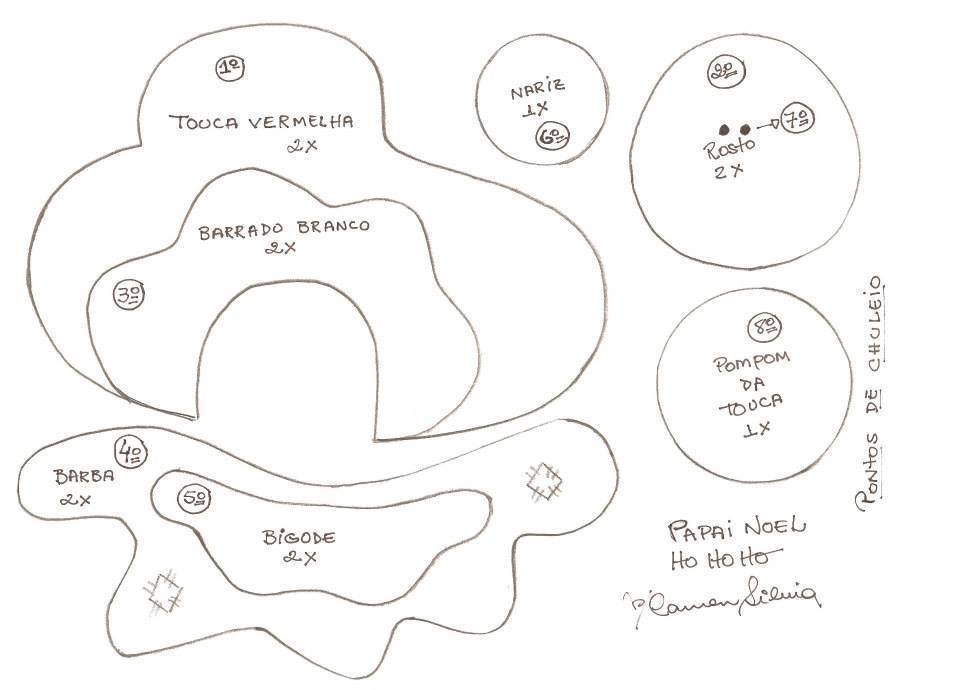 1º
TOUCA VERMELHA
2X
BARRADO BRANCO
2X
3º
NARIZ
1X
6º
2º
7º
Rosto
2X
8º
POMPOM
DA
TOUCA
1X
PONTOS DE CHULEIO
4º
BARBA
2X
5º
BIGODE
2X
PAPAI NOEL
HO HO HO
Carmen Silvia